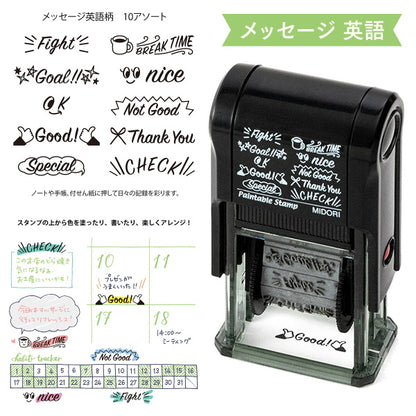 メッセージ英語柄　10アソート
メッセージ 英語
Fight
BREAK TIME
Goal!!
nice
OK
Not Good
Good!
Thank You
Special
CHECK!
ノートや手帳、付せん紙に押して日々の記録を彩ります。
スタンプの上から色を塗ったり、書いたり、楽しくアレンジ！
CHECK!
10
11
プレゼンが
うまくいった!!
Good!
BREAK TIME
17
18
14:00〜
ミーティング
habit tracker
Not Good
1 2 3 4 5 6 7 8 9 10 11 12 13 14 15 16
17 18 19 20 21 22 23 24 25 26 27 28 29 30 31
nice
Fight
Fight
BREAK TIME
Goal!!
nice
OK
Not Good
Good!
Thank You
Special
CHECK!
Paintable Stamp
MIDORI
Good!